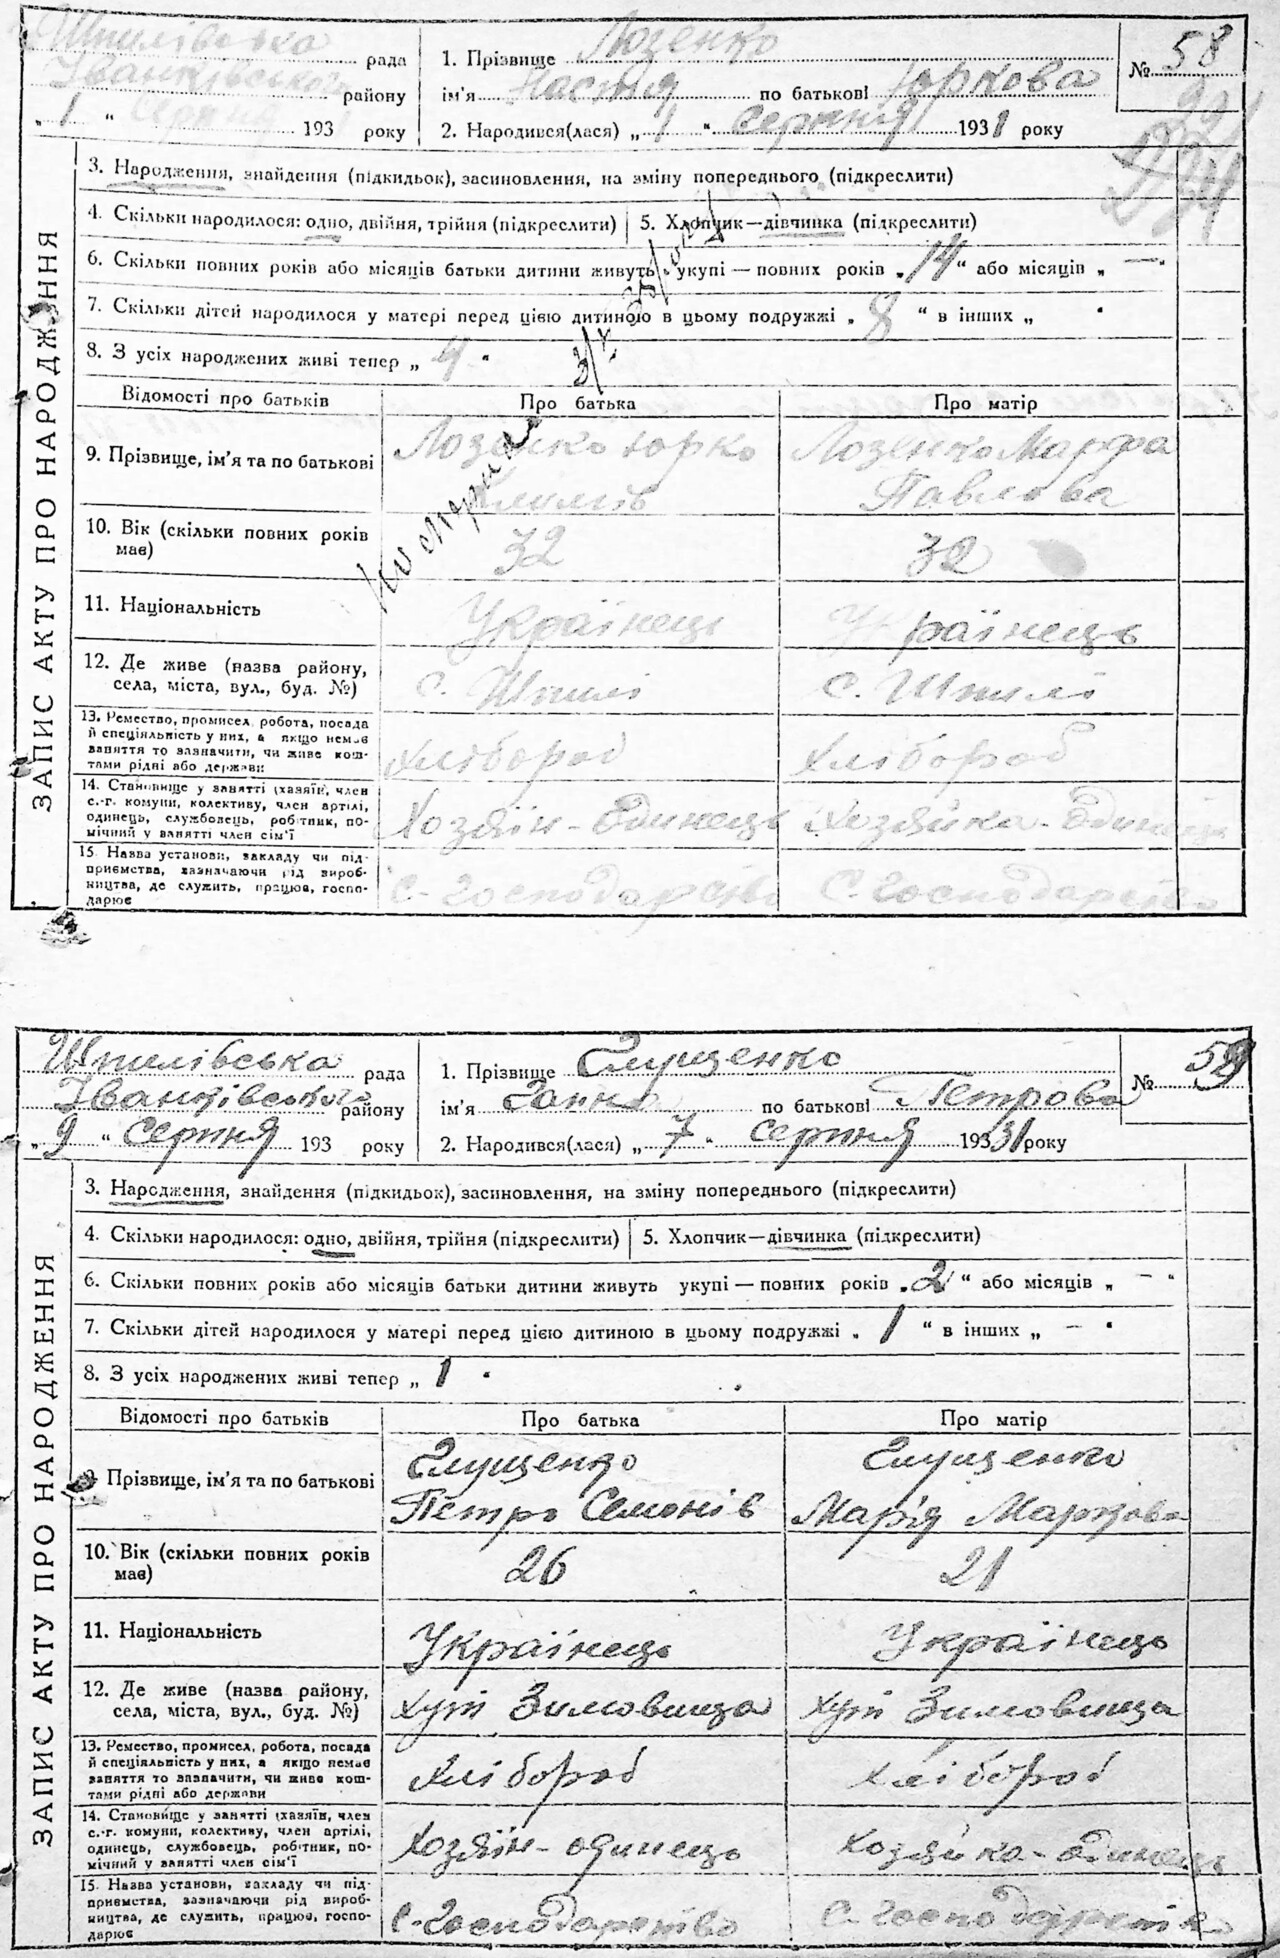 Шпилівська рада
Іванківського району
„ 1 “ Серпня 193 1 року
1. Прізвище Лозенко
ім'я Настя по батькові Юркова
2. Народився(лася) „ 1 “ Серпня 1931 року
№ 58
ЗАПИС АКТУ ПРО НАРОДЖЕННЯ
3. Народження, знайдення (підкидьок), засиновлення, на зміну попереднього (підкреслити)
4. Скільки народилося: одно, двійня, трійня (підкреслити) 5. Хлопчик—дівчинка (підкреслити)
6. Скільки повних років або місяців батьки дитини живуть укупі — повних років „ 14 “ або місяців „ — “
7. Скільки дітей народилося у матері перед цією дитиною в цьому подружжі „ 8 “ в інших „ “
8. З усіх народжених живі тепер „ 4 “
Відомості про батьків Про батька Про матір
9. Прізвище, ім'я та по батькові Лозенко Юрко Лозенко Марфа
Павлова
10. Вік (скільки повних років має) 32 32
11. Національність Українець Українець
12. Де живе (назва району, села, міста, вул., буд. №) с. Шпилі с. Шпилі
13. Ремество, промисел, робота, посада
й спеціяльність у них, а якщо немає
заняття то зазначити, чи живе кош-
тами рідні або держави Хлібороб Хлібороб
14. Становище у занятті (хазяїн, член
с.-г. комуни, колективу, член артілі,
одинець, службовець, робітник, по-
мічний у занятті член сім'ї Хозяїн-одинець Хозяйка-одинець
15. Назва установи, закладу чи під-
приємства, зазначаючи рід вироб-
ництва, де служить, працює, госпо-
дарює С-господарство С-господарство
Шпилівська рада
Іванківського району
„ 9 “ Серпня 193 року
1. Прізвище Глущенко
ім'я Ганна по батькові Петрова
2. Народився(лася) „ 7 “ Серпня 19331 року
№ 59
ЗАПИС АКТУ ПРО НАРОДЖЕННЯ
3. Народження, знайдення (підкидьок), засиновлення, на зміну попереднього (підкреслити)
4. Скільки народилося: одно, двійня, трійня (підкреслити) 5. Хлопчик—дівчинка (підкреслити)
6. Скільки повних років або місяців батьки дитини живуть укупі — повних років „ 2 “ або місяців „ — “
7. Скільки дітей народилося у матері перед цією дитиною в цьому подружжі „ 1 “ в інших „ — “
8. З усіх народжених живі тепер „ 1 “
Відомості про батьків Про батька Про матір
9. Прізвище, ім'я та по батькові Глущенко Глущенко
Петро Семонів Марія Маркова
10. Вік (скільки повних років має) 26 21
11. Національність Українець Українець
12. Де живе (назва району, села, міста, вул., буд. №) Хут Зимовища Хут Зимовища
13. Ремество, промисел, робота, посада
й спеціяльність у них, а якщо немає
заняття то зазначити, чи живе кош-
тами рідні або держави Хлібороб Хлібороб
14. Становище у занятті (хазяїн, член
с.-г. комуни, колективу, член артілі,
одинець, службовець, робітник, по-
мічний у занятті член сім'ї Хозяїн-одинець Хозяйка-одинець
15. Назва установи, закладу чи під-
приємства, зазначаючи рід вироб-
ництва, де служить, працює, госпо-
дарює С-господарство С-господарство